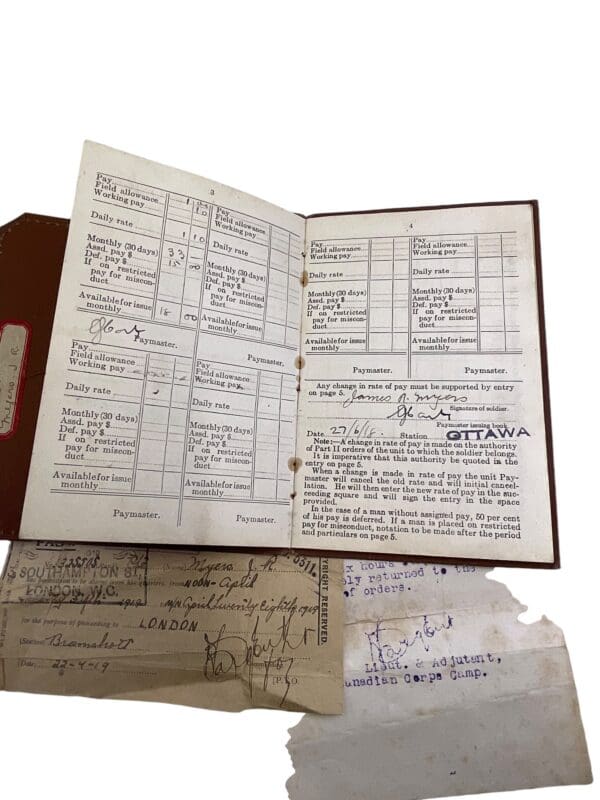 3
Pay
Field allowance 1
Working pay 10
Daily rate 1 10
Monthly (30 days) 33
Assd. pay $ 15 00
Def. pay $
If on restricted
pay for miscon-
duct
Available for issue
monthly 18 00
Paymaster.
Pay
Field allowance
Working pay
Daily rate
Monthly (30 days)
Assd. pay $
Def. pay $
If on restricted
pay for miscon-
duct.
Available for issue
monthly
Paymaster.
Pay
Field allowance
Working pay
Daily rate
Monthly (30 days)
Assd. pay $
Def. pay $
If on restricted
pay for miscon-
duct
Available for issue
monthly
Paymaster.
Pay
Field allowance
Working pay
Daily rate
Monthly (30 days)
Assd. pay $
Def. pay $
If on restricted
pay for miscon-
duct
Available for issue
monthly
Paymaster.
4
Pay
Field allowance
Working pay
Daily rate
Monthly (30 days)
Assd. pay $
Def. pay $
If on restricted
pay for miscon-
duct
Available for issue
monthly
Paymaster.
Pay
Field allowance
Working pay
Daily rate
Monthly (30 days)
Assd. pay $
Def. pay $
If on restricted
pay for miscon-
duct
Available for issue
monthly
Paymaster.
Any change in rate of pay must be supported by entry
on page 5. James R. Myers
Signature of soldier.
Paymaster issuing book
Date 27/6/18. Station OTTAWA
Note:—A change in rate of pay is made on the authority
of Part II orders of the unit to which the soldier belongs.
It is imperative that this authority be quoted in the
entry on page 5.
When a change is made in rate of pay the unit Pay-
master will cancel the old rate and will initial cancel-
lation. He will then enter the new rate of pay in the suc-
ceeding square and will sign the entry in the space
provided.
In the case of a man without assigned pay, 50 per cent
of his pay is deferred. If a man is placed on restricted
pay for misconduct, notation to be made after the period
and particulars on page 5.
Myers J R
Myers J. R.
SOUTHAMPTON ST.
LONDON, W.C.
NOON
1919
April twenty eighth 1919
for the purpose of proceeding to LONDON
(Station) Bramshott
(Date) 22-4-19
COPYRIGHT RESERVED.
ix hours
ly returned to the
of orders.
Lieut. & Adjutant,
anadian Corps Camp.